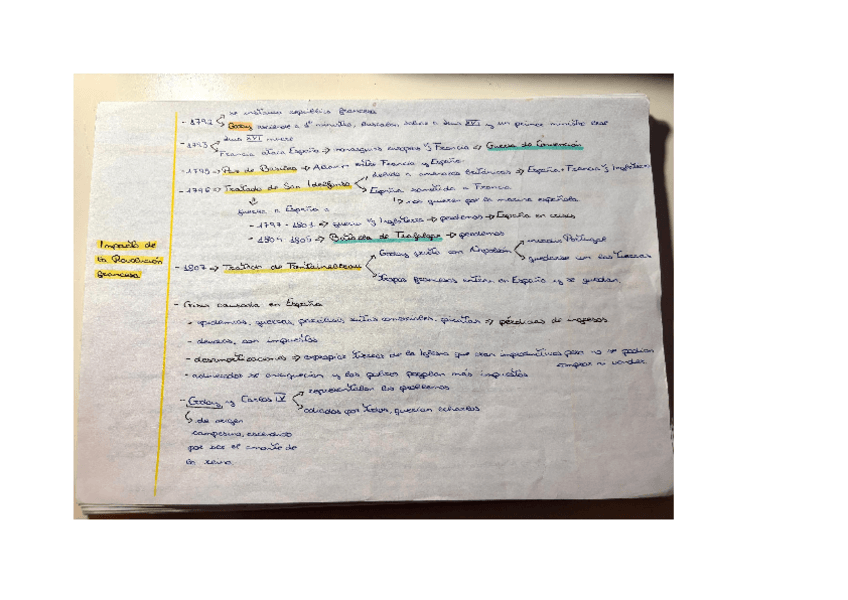 se instaura república francesa
- 1792
Godoy asciende a 1º ministro, buscaban salvar a Luis XVI y un primer ministro leal
Luis XVI muere
- 1793
Francia ataca España → monarquías europeas vs Francia → Guerra de Convención
- 1795 → Paz de Basilea → Alianza entre Francia y España
- 1796 → Tratado de San Ildefonso
debido a amenazas británicas → España + Francia vs Inglaterra
España sometida a Francia
→ nos quieren por la marina española
guerra a España a
- 1797 - 1801 → guerra vs Inglaterra → perdemos → España en crisis
- 1804 1805 → Batalla de Trafalgar → perdemos
Impacto de
la Revolución
francesa
- 1807 → Tratado de Fontainebleau
Godoy pacta con Napoleón
invadir Portugal
quedarse con las tierras
tropas francesas entran en España y se quedan
- Crisis causada en España
- epidemias, guerras, piratas → pérdidas de ingresos
- deudas, con impuestos
- desamortizaciones → expropiar tierras de la Iglesia que eran improductivas pero no se podían
comprar ni vender
- adinerados se enriquecían y los pobres pagaban más impuestos
- Godoy y Carlos IV
representaban los problemas
odiados por todos, querían echarlos
de origen
campesino, ascendió
por ser el amante de
la reina